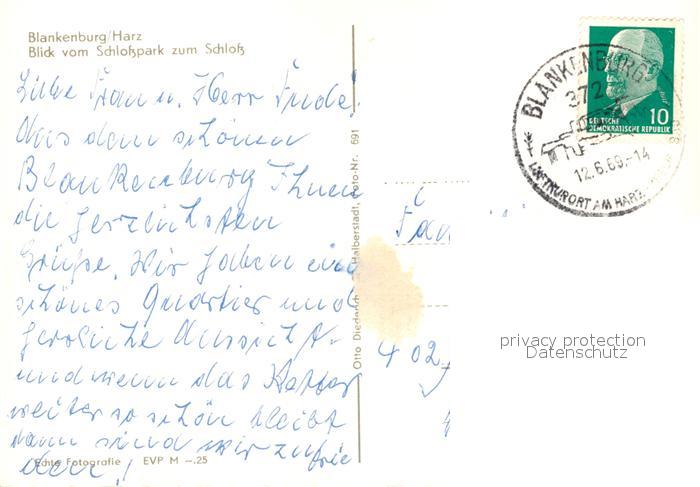 Blankenburg/Harz
Blick vom Schloßpark zum Schloß
Liebe Frau u. Herr Fude!
Aus dem schönen
Blankenburg Ihnen
die herzlichsten
Grüße. Wir haben ein
schönes Quartier und
herrliche Aussicht-
und wenn das Wetter
weiter so schön bleibt
dann sind wir zufrie
den!
Echte Fotografie EVP M -.25
Otto Diederich Halberstadt, Foto-Nr. 691
BLANKENBURG
372
12.6.69.-14
LUFTKURORT AM HARZ
10
DEUTSCHE
DEMOKRATISCHE REPUBLIK
Fam
402
privacy protection
Datenschutz